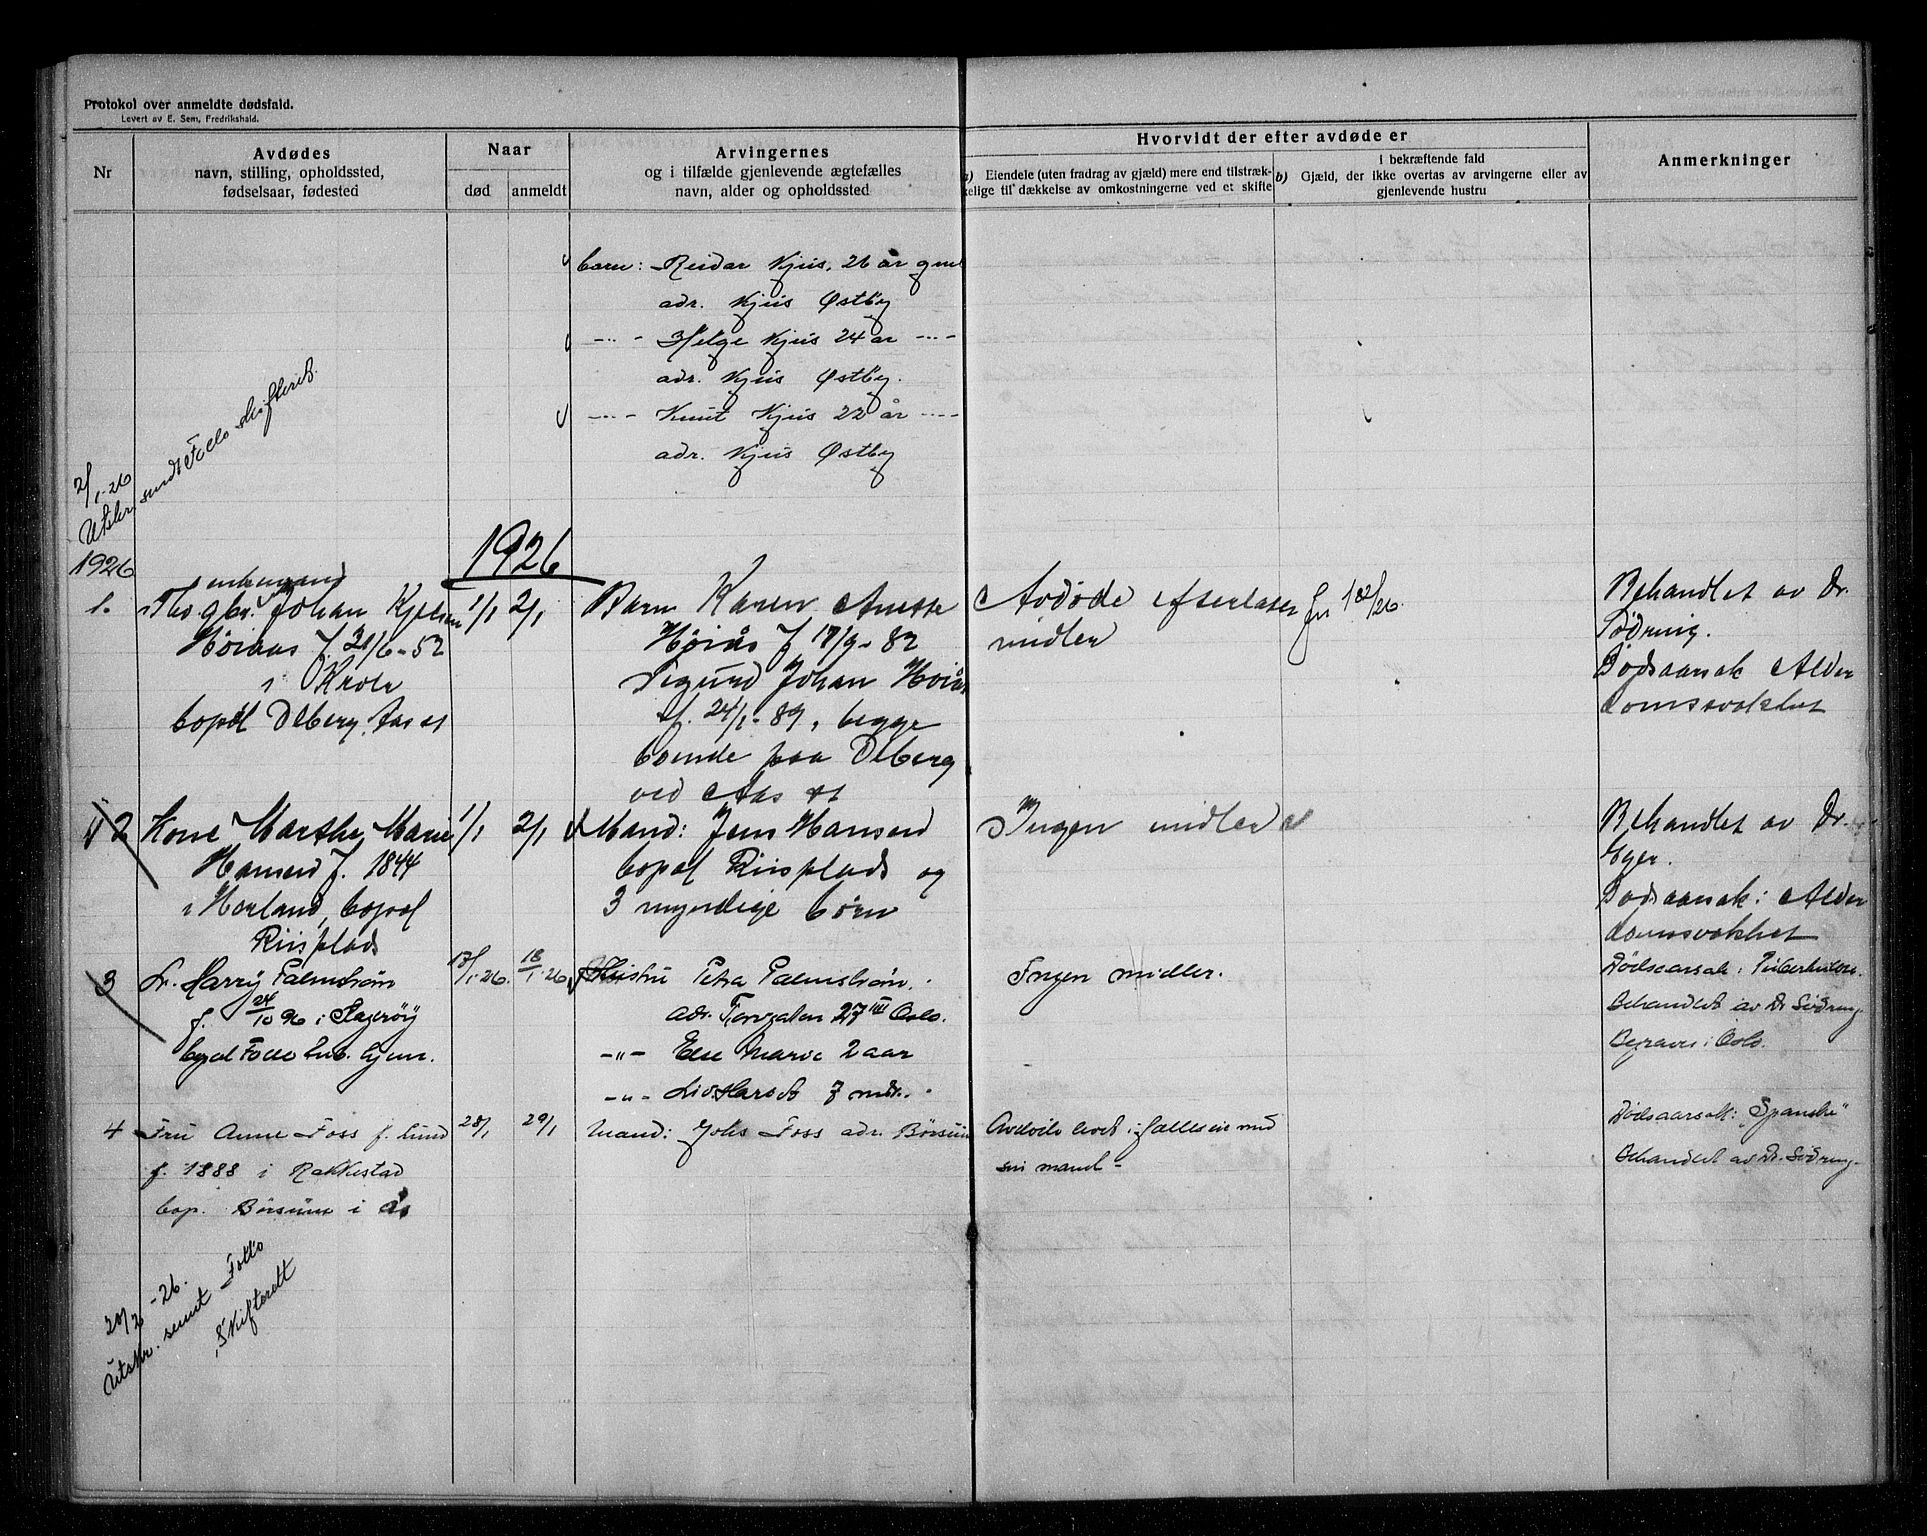 Protokol over anmeldte dødsfald.
Levert av E. Sem, Fredrikshald.
Nr
Avdødes
navn, stilling, opholdssted,
fødselsaar, fødested
Naar
død
anmeldt
Arvingernes
og i tilfælde gjenlevende ægtefælles
navn, alder og opholdssted
Hvorvidt der efter avdøde er
a) Eiendele (uten fradrag av gjæld) mere end tilstræk-
kelige til dækkelse av omkostningerne ved et skifte
I bekræftende fald
b) Gjæld, der ikke overtas av arvingerne eller av
gjenlevende hustru
Anmerkninger
barn: Reidar Kjus, 26 år
adr. Kjus Østby
-"- Helge Kjus 24 år -"-
adr. Kjus Østby.
-"- Knut Kjus 22 år -"-
adr. Kjus Østby
2/1-26
Utskr. sendt Follo skifteret.
1926
1926
1.
enkemand
Johan
f. 21/6-52
i
bopæl Olberg, Aas st
1/1
2/1
Barn Karen
Høiås f 17/9-82
Sigurd Johan Høiås
f. 24/1-89, begge
boende paa Olberg
ved Aas st
Avdøde efterlater
midler
Behandlet av Dr.
Sødring.
Dødsaarsak Alder
domssvakhet
2
Kone Marthe Marie
Hansen f. 1844
i Horland, bopæl
Riisplads
1/1
2/1
Mand: Jens Hansen
bopæl Riisplads og
3 myndige børn
Ingen midler
Behandlet av Dr.
Eger.
Dødsaarsak: Alder
domssvakhet
3
Hr. Harry Palmstrøm
f. 24/10 96 i
bopæl Follo tub. hjem.
18/1-26.
18/1-26
Hustru Petra Palmstrøm.
adr. Torvgaten 27 III Oslo.
-"- Else Marie 2 aar
-"- 7 mdr.
Ingen midler.
Dødsaarsak: Tuberkulose.
Behandlet av Dr. Sødring
Begraves i Oslo.
4
Fru Anne Foss f. Lund
f. 1888 i Rakkestad
bop. Børsum i Ås
28/1
29/1
Mand: Johs Foss adr. Børsum
Avdøde levet i fælleseie med
sin mand-
Dødsaarsak: "Spanske"
Behandlet av Dr. Sødring.
20/2-26.
Utskr. sendt Follo
Skifterett